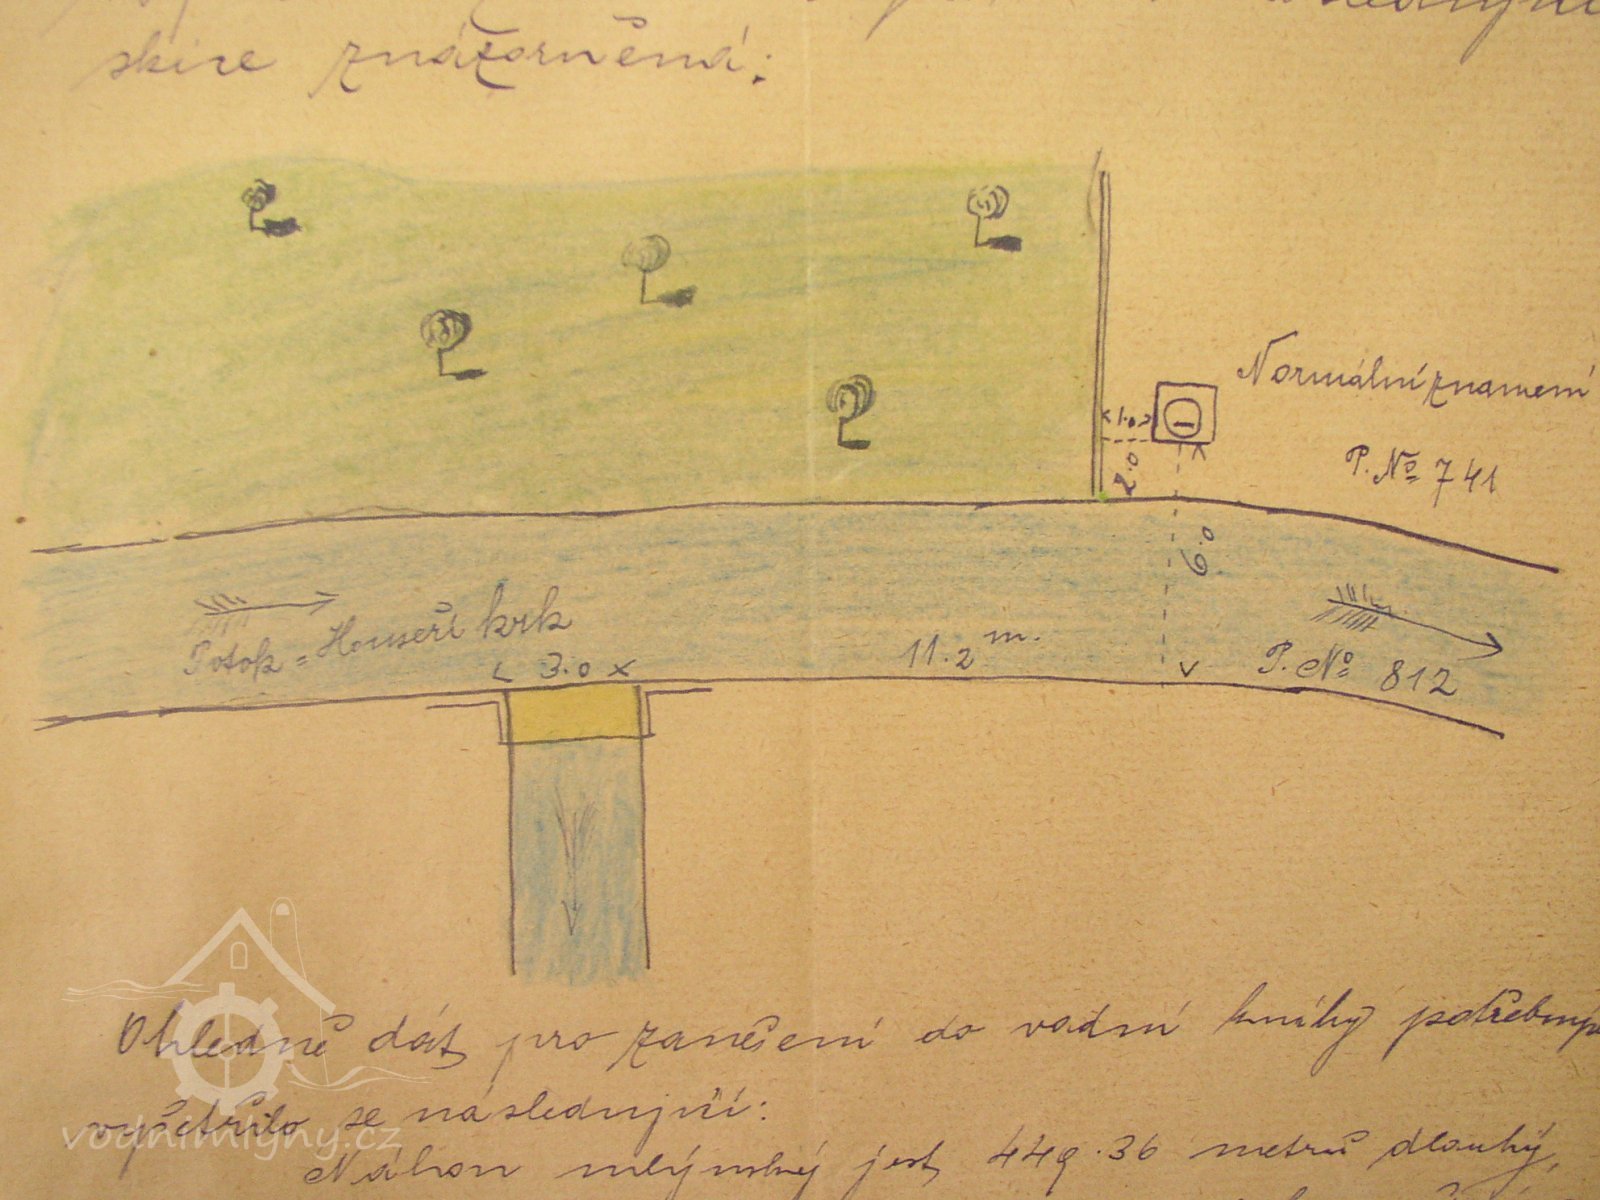 následující
skize znázorněná:
Normální znamení
1.0
P. No 741
2.0
6.0
Potok = Houseří krk
3.0
11.2 m.
P. No 812
Ohledně dát pro zanešení do vodní knihy potřebných
vyšetřilo se následující:
vodnimlyny.cz
Náhon mlýnský jest 449.36 metrů dlouhý,